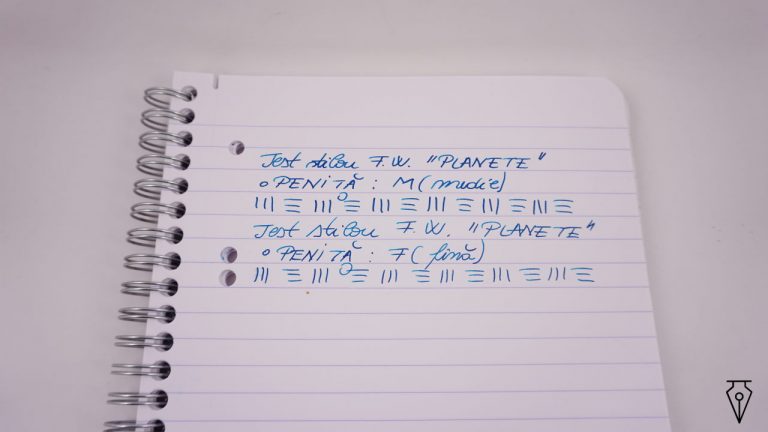 Test stilou F.W. "PLANETE"
o PENIȚĂ : M (medie)
Test stilou F.W. "PLANETE"
o PENIȚĂ : F (fină)